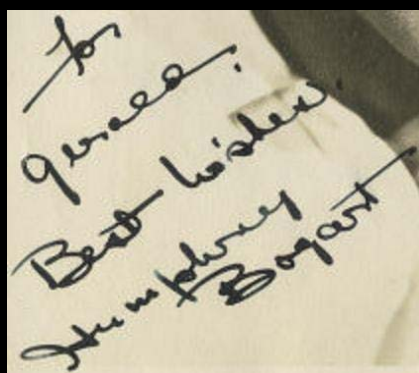 To
Gerald,
Best Wishes.
Humphrey
Bogart